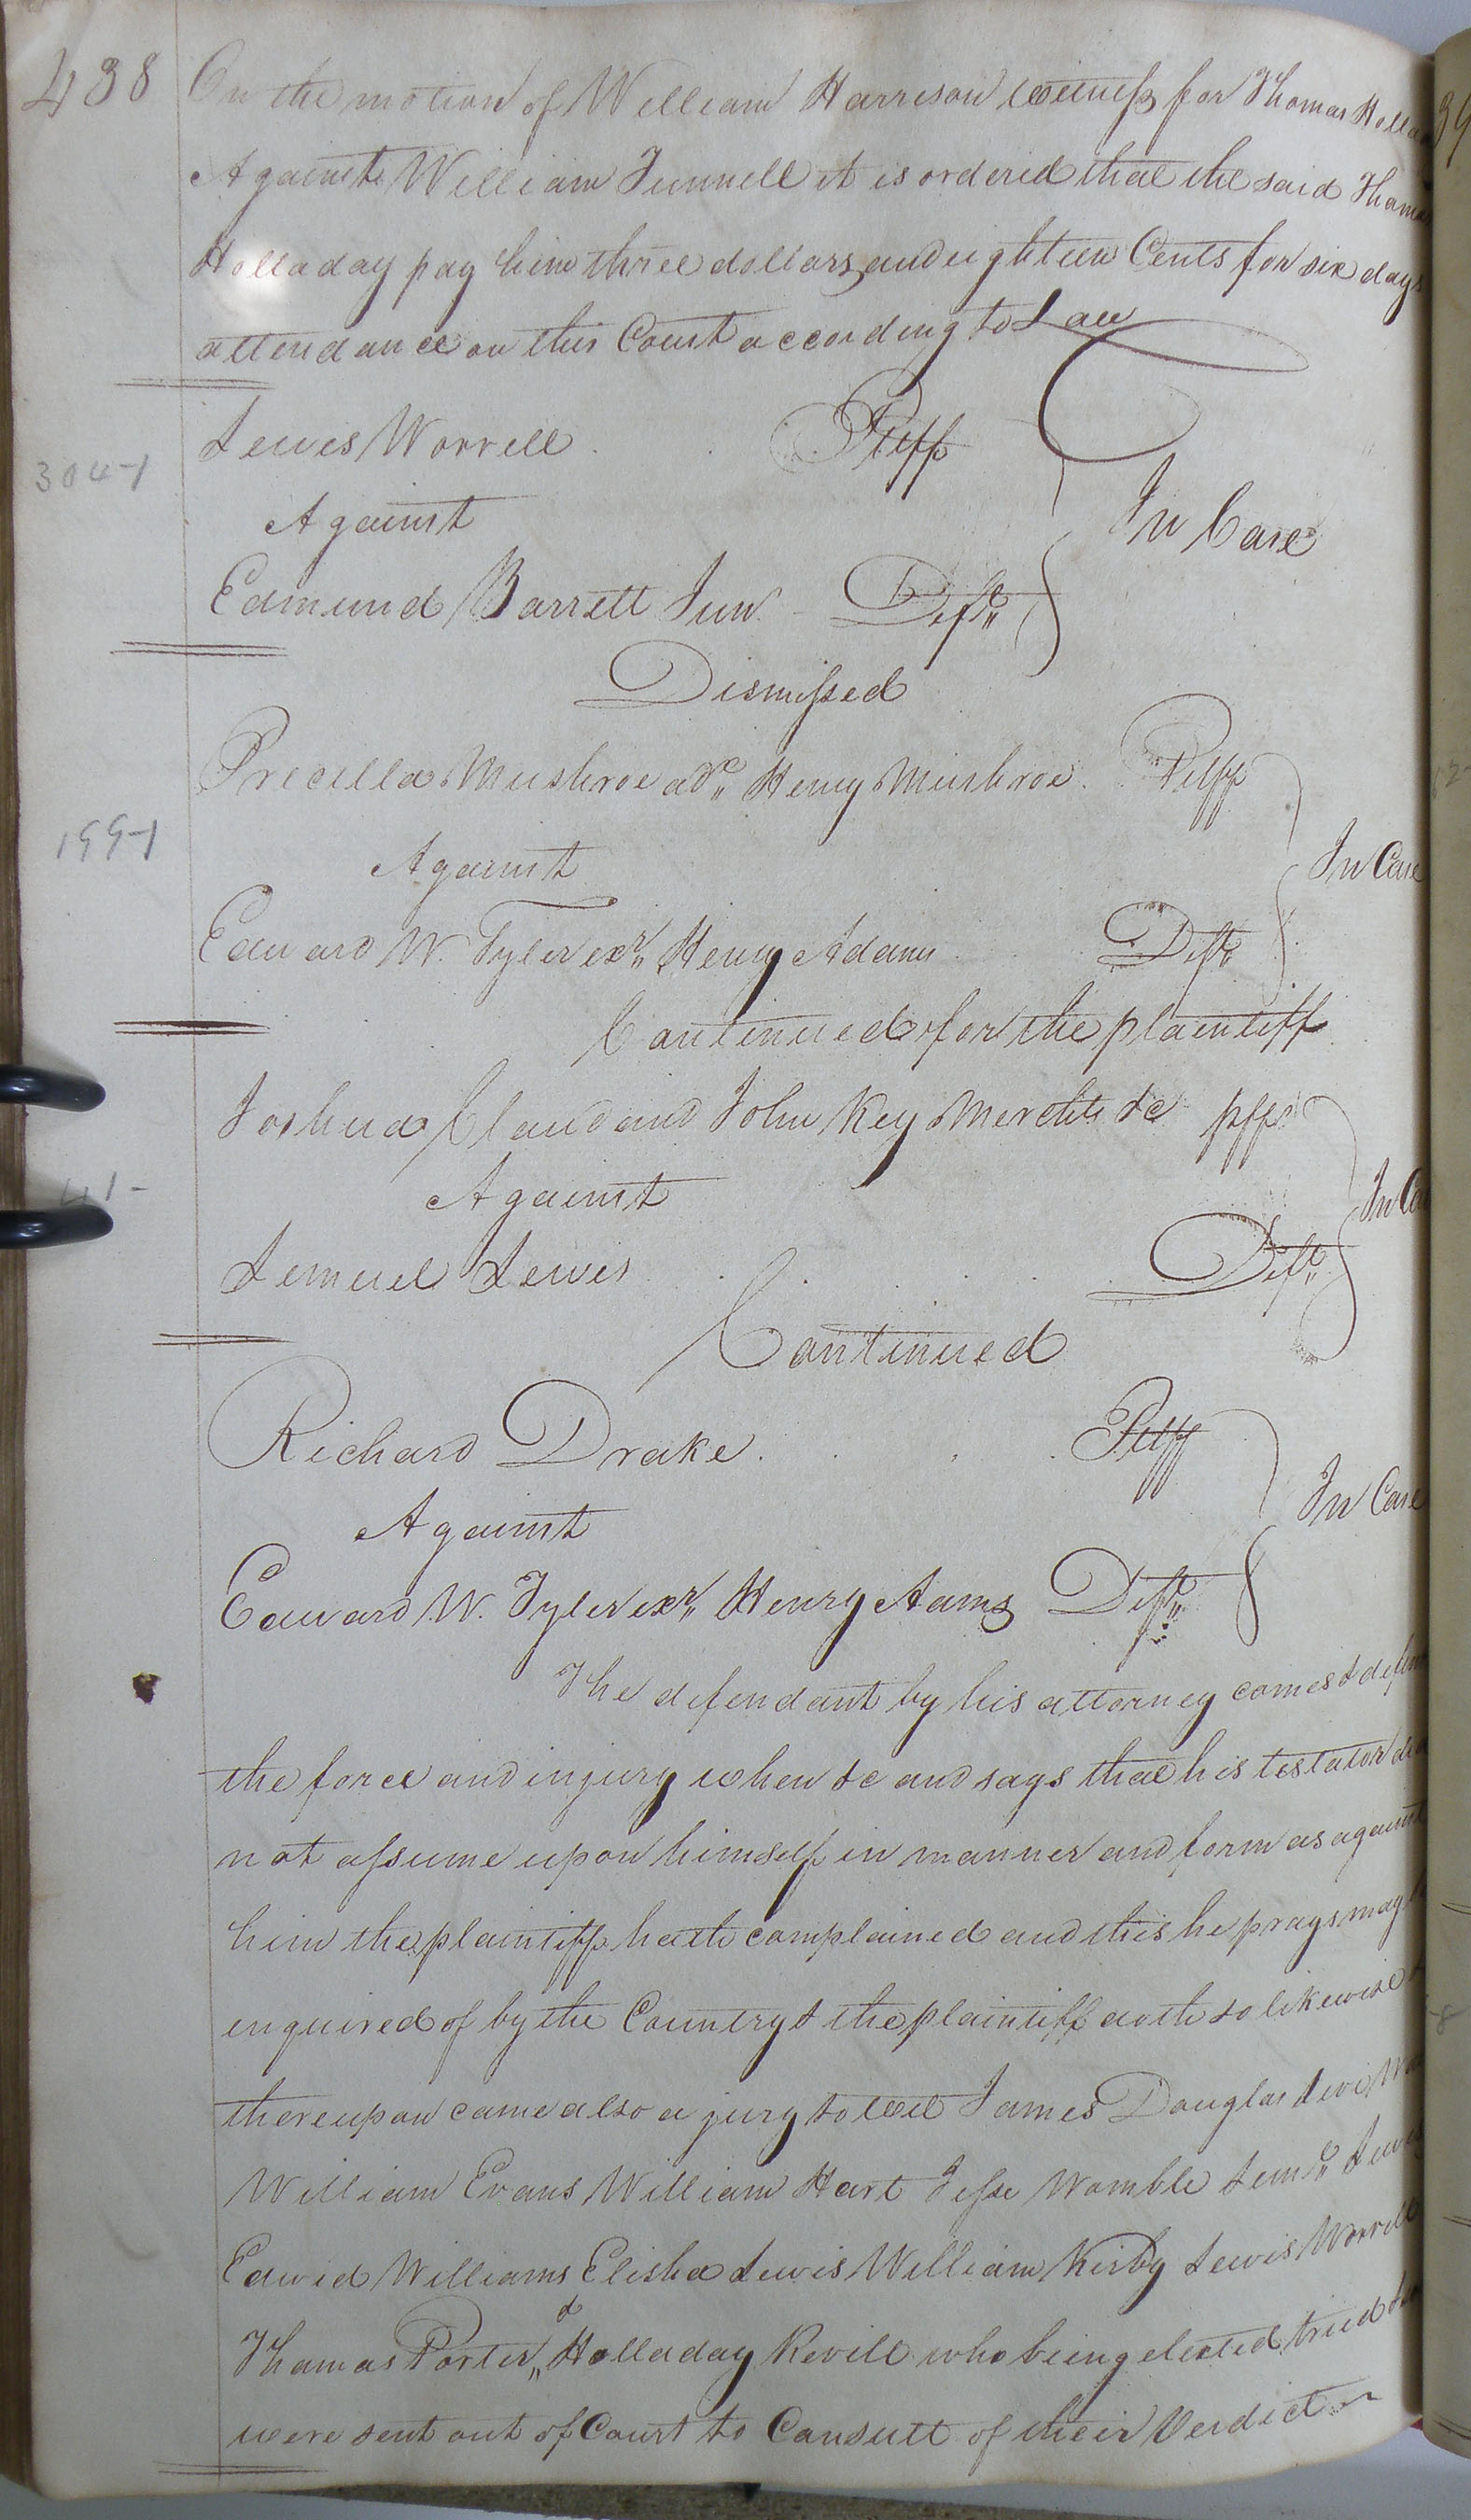 438
On the motion of William Harrison witness for Thomas Holla
Against William Tunnell it is ordered that the said Thomas
Holladay pay him three dollars and eighteen Cents for six days
attendance on this Court according to Law
Lewis Worrell Pltff
304-1
Against In Case
Edmund Barrett Jun Deft
Dismissed
Precilla Mushroe adx Henry Mushroe Pltff
199-1
Against In Case
Edward W. Tyler exr Henry Adams Deft
Continued for the plaintiff
Joshua Claud and John Key Merchts &c plffs
41-
Against In Ca
Lemuel Lewis Deft
Continued
Richard Drake Pltff
Against In Case
Edward W. Tyler exr Henry Aams Deft
The defendant by his attorney comes & defen
the force and injury when &c and says that his testator di
not assume upon himself in manner and form as against
him the plaintiff hath complained and this he prays may
enquired of by the Country & the plaintiff doth so likewise
thereupon came also a jury to wit James Douglas
William Evans William Hart Jesse Womble Leml Lewis
Edwid Williams Elisha Lewis William Kirby Lewis Worrell
Thomas Porter & Holladay Revill who being elected tried
were sent out of Court to Consult of their Verdict